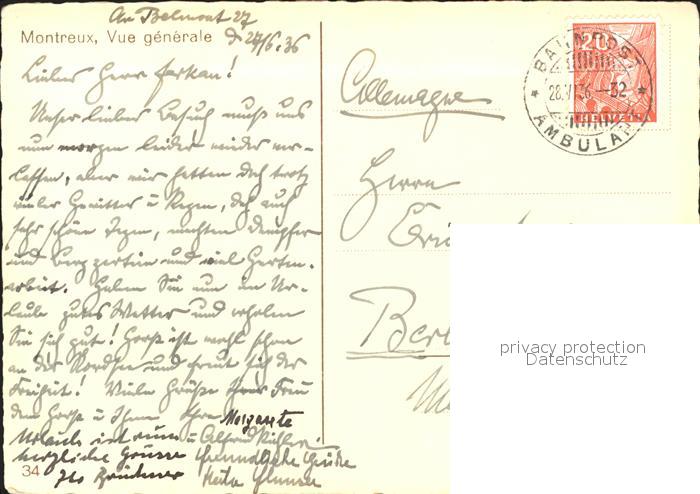 Av Belmont 27
Montreux, Vue générale d 27/6.36
Liebes Herr
Unser lieber Besuch muß uns
nun morgen leider wieder ver-
lassen, aber wir hatten doch trotz
vieler Gewitter u Regen, doch auch
sehr schöne machten Dampfer
und und viel Garten-
arbeit. Haben Sie nun im Ur-
laub gutes Wetter und erholen
Sie sich gut! Horst ist wohl schon
an der Nordsee und freut sich der
Freiheit! Viele Grüße Ihrer Frau
dem Horst u Ihnen Ihre Margarete
u
herzliche Grüsse freundliche Grüße
34
Allemagne
Herrn
Ber
BAHNPOST
28.VI.36.–32
AMBULANT
20
HELVETIA
privacy protection
Datenschutz